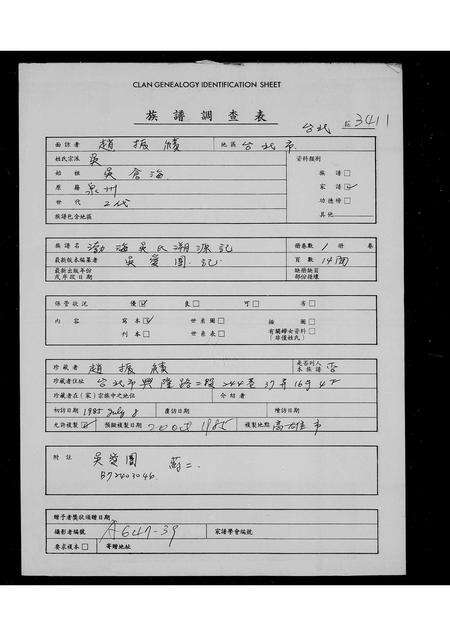 CLAN GENEALOGY IDENTIFICATION SHEET
族譜調查表
台北 3411
面訪者 趙振績 地區 台北市
姓氏宗派 吳 資料類別
始祖 吳倉海 族譜□
原籍 泉州 家譜☑
世代 2代 功德榜□
族譜包含地區 其他
族譜名 渤海吳氏溯源記 冊卷數 1 冊 卷
最新版本編纂者 吳愛國 記 頁數 14面
最新出版年份 缺冊缺頁
及年段日期 部份損壞
保管狀況 優☑ 良□ 可□ 劣□
內容 寫本☑ 世系圖□ 插圖□
刊本□ 世系表□ 有關婦女資料□
(非僅姓氏)
珍藏者 趙振績 是否列入本族譜 否
珍藏者住址 台北市興隆路二段244巷37弄16号4F
珍藏者在(家)宗族中之地位 介紹者
初訪日期 1985 July 8 複訪日期 續訪日期
允許複製☑ 預擬複製日期 1985 複製地點 高雄市
附註 吳愛國
B72403046
贈予者獎狀頒贈日期
攝影者編號 A647-39 家譜學會編號
要求複本□ 寄贈地址